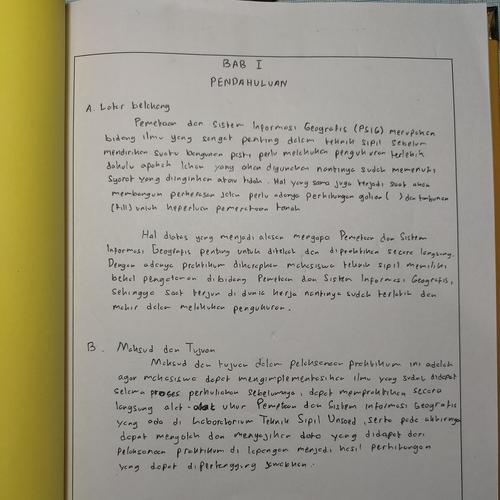 BAB I
PENDAHULUAN
A. Latar belakang
Pemetaan dan Sistem Informasi Geografis (PSIG) merupakan
bidang ilmu yang sangat penting dalam teknik sipil sebelum
mendirikan suatu bangunan pasti perlu melakukan pengukuran terlebih
dahulu apakah lahan yang akan digunakan nantinya sudah memenuhi
syarat yang diinginkan atau tidak. Hal yang sama juga terjadi saat akan
membangun perkerasan jalan perlu adanya perhitungan galian ( ) dan timbunan
(fill) untuk keperluan pemerataan tanah
Hal diatas yang menjadi alasan mengapa Pemetaan dan Sistem
Informasi Geografis penting untuk ditelaah dan dipraktikan secara langsung.
Dengan adanya praktikum diharapkan mahasiswa teknik sipil memiliki
bekal pengetahuan dibidang Pemetaan dan Sistem Informasi Geografis,
sehingga saat terjun di dunia kerja nantinya sudah terlatih dan
mahir dalam melakukan pengukuran.
B. Maksud dan Tujuan
Maksud dan tujuan dalam pelaksanaan praktikum ini adalah
agar mahasiswa dapat mengimplementasikan ilmu yang sudah didapat
selama proses perkuliahan sebelumnya, dapat mempraktikan secara
langsung alat-alat ukur Pemetaan dan Sistem Informasi Geografis
yang ada di Laboratorium Teknik Sipil Unsoed, serta pada akhirnya
dapat mengolah dan menyajikan data yang didapat dari
pelaksanaan praktikum di lapangan menjadi hasil perhitungan
yang dapat dipertanggung jawabkan.